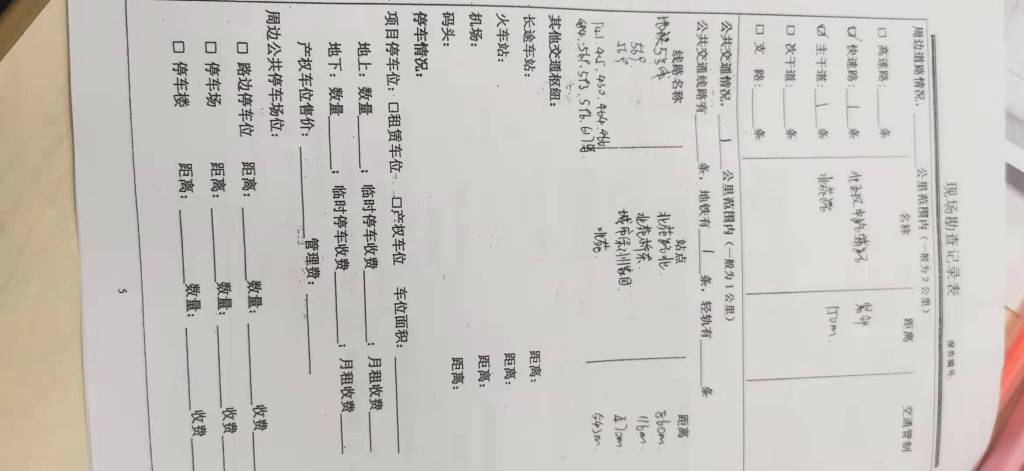 现场勘查记录表
报告编号
周边道路情况，____公里范围内（一般为2公里）
名称 距离 交通管制
□ 高速路：____条
☑ 快速路：1条 紧邻
☑ 主干道：1条 北苑路 150m
□ 次干道：____条
□ 支 路：____条
公共交通情况，1公里范围内（一般为1公里）
公共交通线路有____条，地铁有1条，轻轨有____条
线路名称 站点 距离
地铁5号 北苑路北 860m
569 北苑桥东 116m
城市绿洲家园 470m
北苑 543m
其他交通枢纽：
长途车站： 距离：
火车站： 距离：
机场： 距离：
码头： 距离：
停车情况：
项目停车位：□租赁车位 □产权车位 车位面积：____
地上：数量____；临时停车收费____；月租收费____
地下：数量____；临时停车收费____；月租收费____.
产权车位售价：____管理费：____
周边公共停车场位：
□ 路边停车位 距离：____数量：____收费
□ 停车场 距离：____数量：____收费
□ 停车楼 距离：____数量：____收费
5